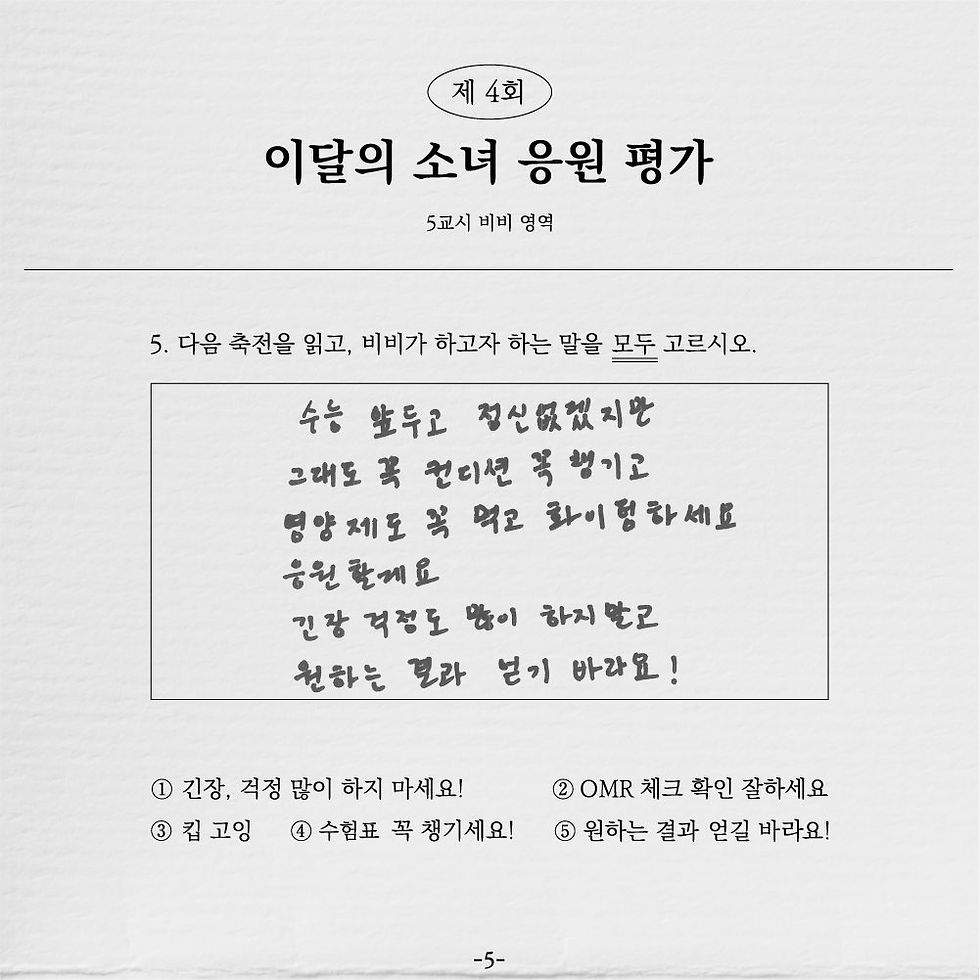 제 4회
이달의 소녀 응원 평가
5교시 비비 영역
5. 다음 축전을 읽고, 비비가 하고자 하는 말을 모두 고르시오.
수능 앞두고 정신없겠지만
그래도 꼭 컨디션 꼭 챙기고
영양제도 꼭 먹고 화이팅하세요
응원할게요
긴장 걱정도 많이 하지말고
원하는 결과 얻기 바라요!
① 긴장, 걱정 많이 하지 마세요! ② OMR 체크 확인 잘하세요
③ 킵 고잉 ④ 수험표 꼭 챙기세요! ⑤ 원하는 결과 얻길 바라요!
-5-